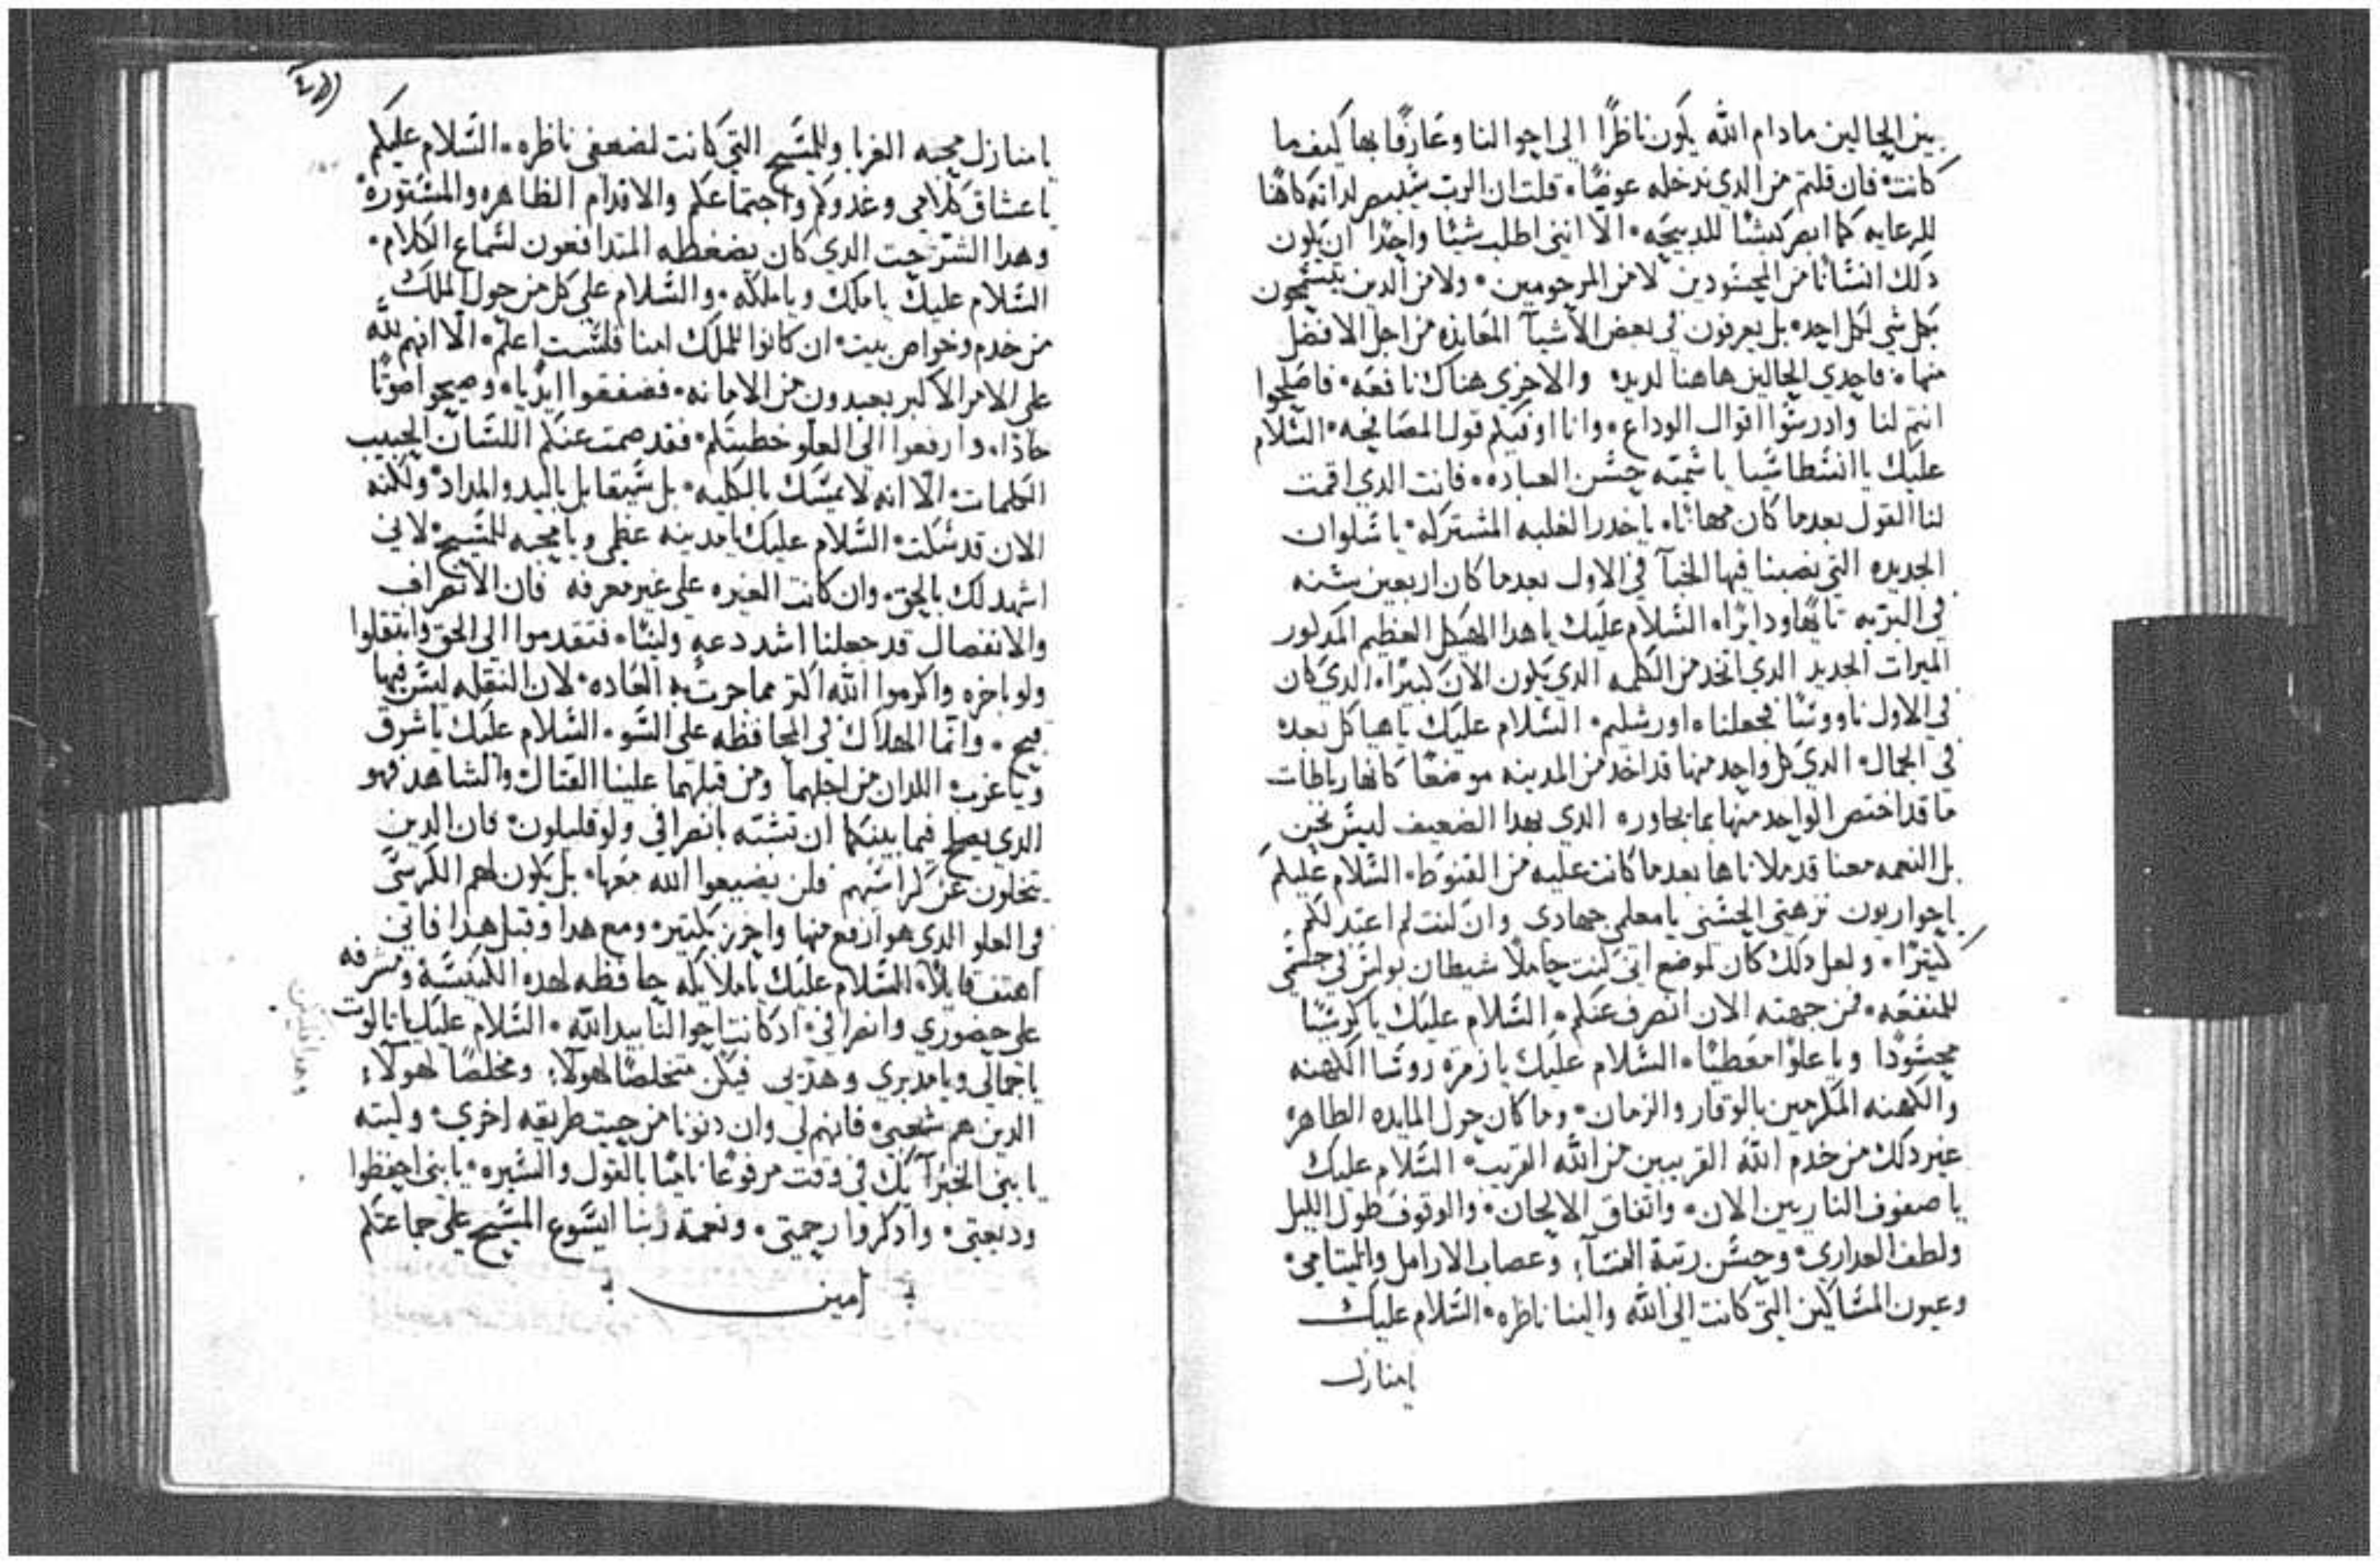 بين الحالين مادام الله يكون ناظرًا الى احوالنا وعارفًا بها كيف ما
كانت۰ فان قلتم من الدي ندخله عوضًا۰ قلت ان الرب سيبصر لداته كاهنًا
للرعايه كما ابصر كبشًا للدبيحه۰ الا انني اطلب شيئًا واحدًا ان يكون
دلك انسانًا من المحسودين لا من المرحومين۰ ولا من الدين يتسمحون
بكل شي لكل احد۰ بل يعرفون في بعض الاشيآ المعانده من اجل الافضل
منها۰ فاحدي الحالين هاهنا لديده والاخري هناك نافعه۰ فاصلحوا
انتم لنا وادرسوا اقوال الوداع۰ وانا اوفيكم قول المصافحه۰ السلام
عليك يا انسطاسيا يا سميّه حسن العباده۰ فانت الدي اقمت
لنا القول بعدما كان مهانًا۰ يا خدر الغلبه المشتركه۰ يا شلوان
الجديده التي نصبنا فيها الخبآ في الاول بعدما كان اربعين سنه
في البريه تايهًا ودايرًا۰ السلام عليك يا هدا الهيكل العظيم المدكور
الميرات الجديد الدي اتخد من الكلمه الدي يكون الان كبيرًا۰ الدي كان
في الاول ناووسًا فجعلناه اورشليم۰ السلام عليك يا هياكل بعده
في الجمال۰ الدي كل واحد منها قد اخد من المدينه موضعًا كانها رباطات
ما قد اختص الواحد منها بما يجاوره الدي بهدا الضعيف ليس نحن
بل النعمه معنا قد ملاناها بعدما كانت عليه من القنوط۰ السلام عليكم
يا حواريون نزهتي الحسني يا معلمي جهادي وان كنت لم اعيد لكم
كتيرًا۰ ولعل دلك كان لموضع اني كنت حاملًا شيطان بولس في جسمي
للمنفعه۰ فمن جهته الان انصرف عنكم۰ السلام عليك يا كرسيًا
محسودًا ويا علوًا معطيًا۰ السلام عليك يا زمرة روسا الكهنه
والكهنه المكرمين بالوقار والزمان۰ وما كان حول المايده الطاهره
غير دلك من خدم الله القريبين من الله القريب۰ السلام عليك
يا صفوف الناربين الان۰ واتفاق الالحان۰ والوقوف طول الليل
ولطف العداري۰ وحسن رتبة النسآ۰ وعصاب الارامل واليتامي۰
وعيون المساكين التي كانت الى الله والينا ناظره۰ السلام عليك
يا منازل
يا منازل محبه الغربا وللمسيح التي كانت لضعفي ناظره۰ السلام عليكم
يا عشاق كلامي وغدوكم واجتماعكم والاقدام الظاهره والمستوره۰
وهدا الشترجت الدي كان يضغطه المتدافعون لسماع الكلام۰
السلام عليك يا ملك ويا ملكه۰ والسلام علي كل من حول الملك
من خدم وخواص بيت۰ ان كانوا للملك امنا فلست اعلم۰ الا انهم لله
على الامر الاكبر بعيدون من الامانه۰ فصفقوا ايديًا۰ وصيحوا صوتًا
حادًا۰ وارفعوا الى العلو خطيبكم۰ فقد صمت عنكم اللسان الحبيب
الكلمات۰ الا انه لا يمسك بالكليه۰ بل سيقابل باليد والمداد۰ ولكنه
الان قد سكت۰ السلام عليك يا مدينه عظمي ويا محبه للمسيح۰ لاني
اشهد لك بالحق۰ وان كانت الغيره علي غير معرفه فان الانصراف
والانفصال قد جعلنا اشد دعه ولينًا۰ فتقدموا الي الحق وانتقلوا
ولو باخره واكرموا الله اكتر مما جرت به العاده۰ لان النقله ليس فيها
قبيح۰ وانما الهلاك في المحافظه على السو۰ السلام عليك يا شرق
ويا غرب۰ اللدان من اجلهما ومن قبلهما علينا القتال۰ والشاهد فهو
الدي يصلح فيما بينكما ان تشبه بانصرافي ولو قليلون۰ فان الدين
يتخلون عن كراسيهم فلن يضيعوا الله معها۰ بل يكون لهم الكرسي
في العلو الدي هو ارفع منها واحرز بكتير۰ ومع هدا وقبل هدا فاني
اهتف قايلًا۰ السلام عليك يا ملايكه حافظه لهده الكنيسة ومشرفه
علي حضوري وانصرافي۰ اد كانت احوالنا بيد الله۰ السلام عليك يا تالوت
يا جمالي ويا مدبري وهدبي فيكن متخلصًا لهولآ۰ ومخلصًا لهولآ۰
الدين هم شعبي۰ فانهم لي وان دنونا من حيت طريقه اخري۰ وليته
يا بني الخبر آتيك في وقت مرفوعًا ناميًا بالقول والسيره۰ يا بني احفظوا
وديعتي۰ وادكروا رجمتي۰ ونعمة ربنا ايسوع المسيح علي جماعتكم
امين